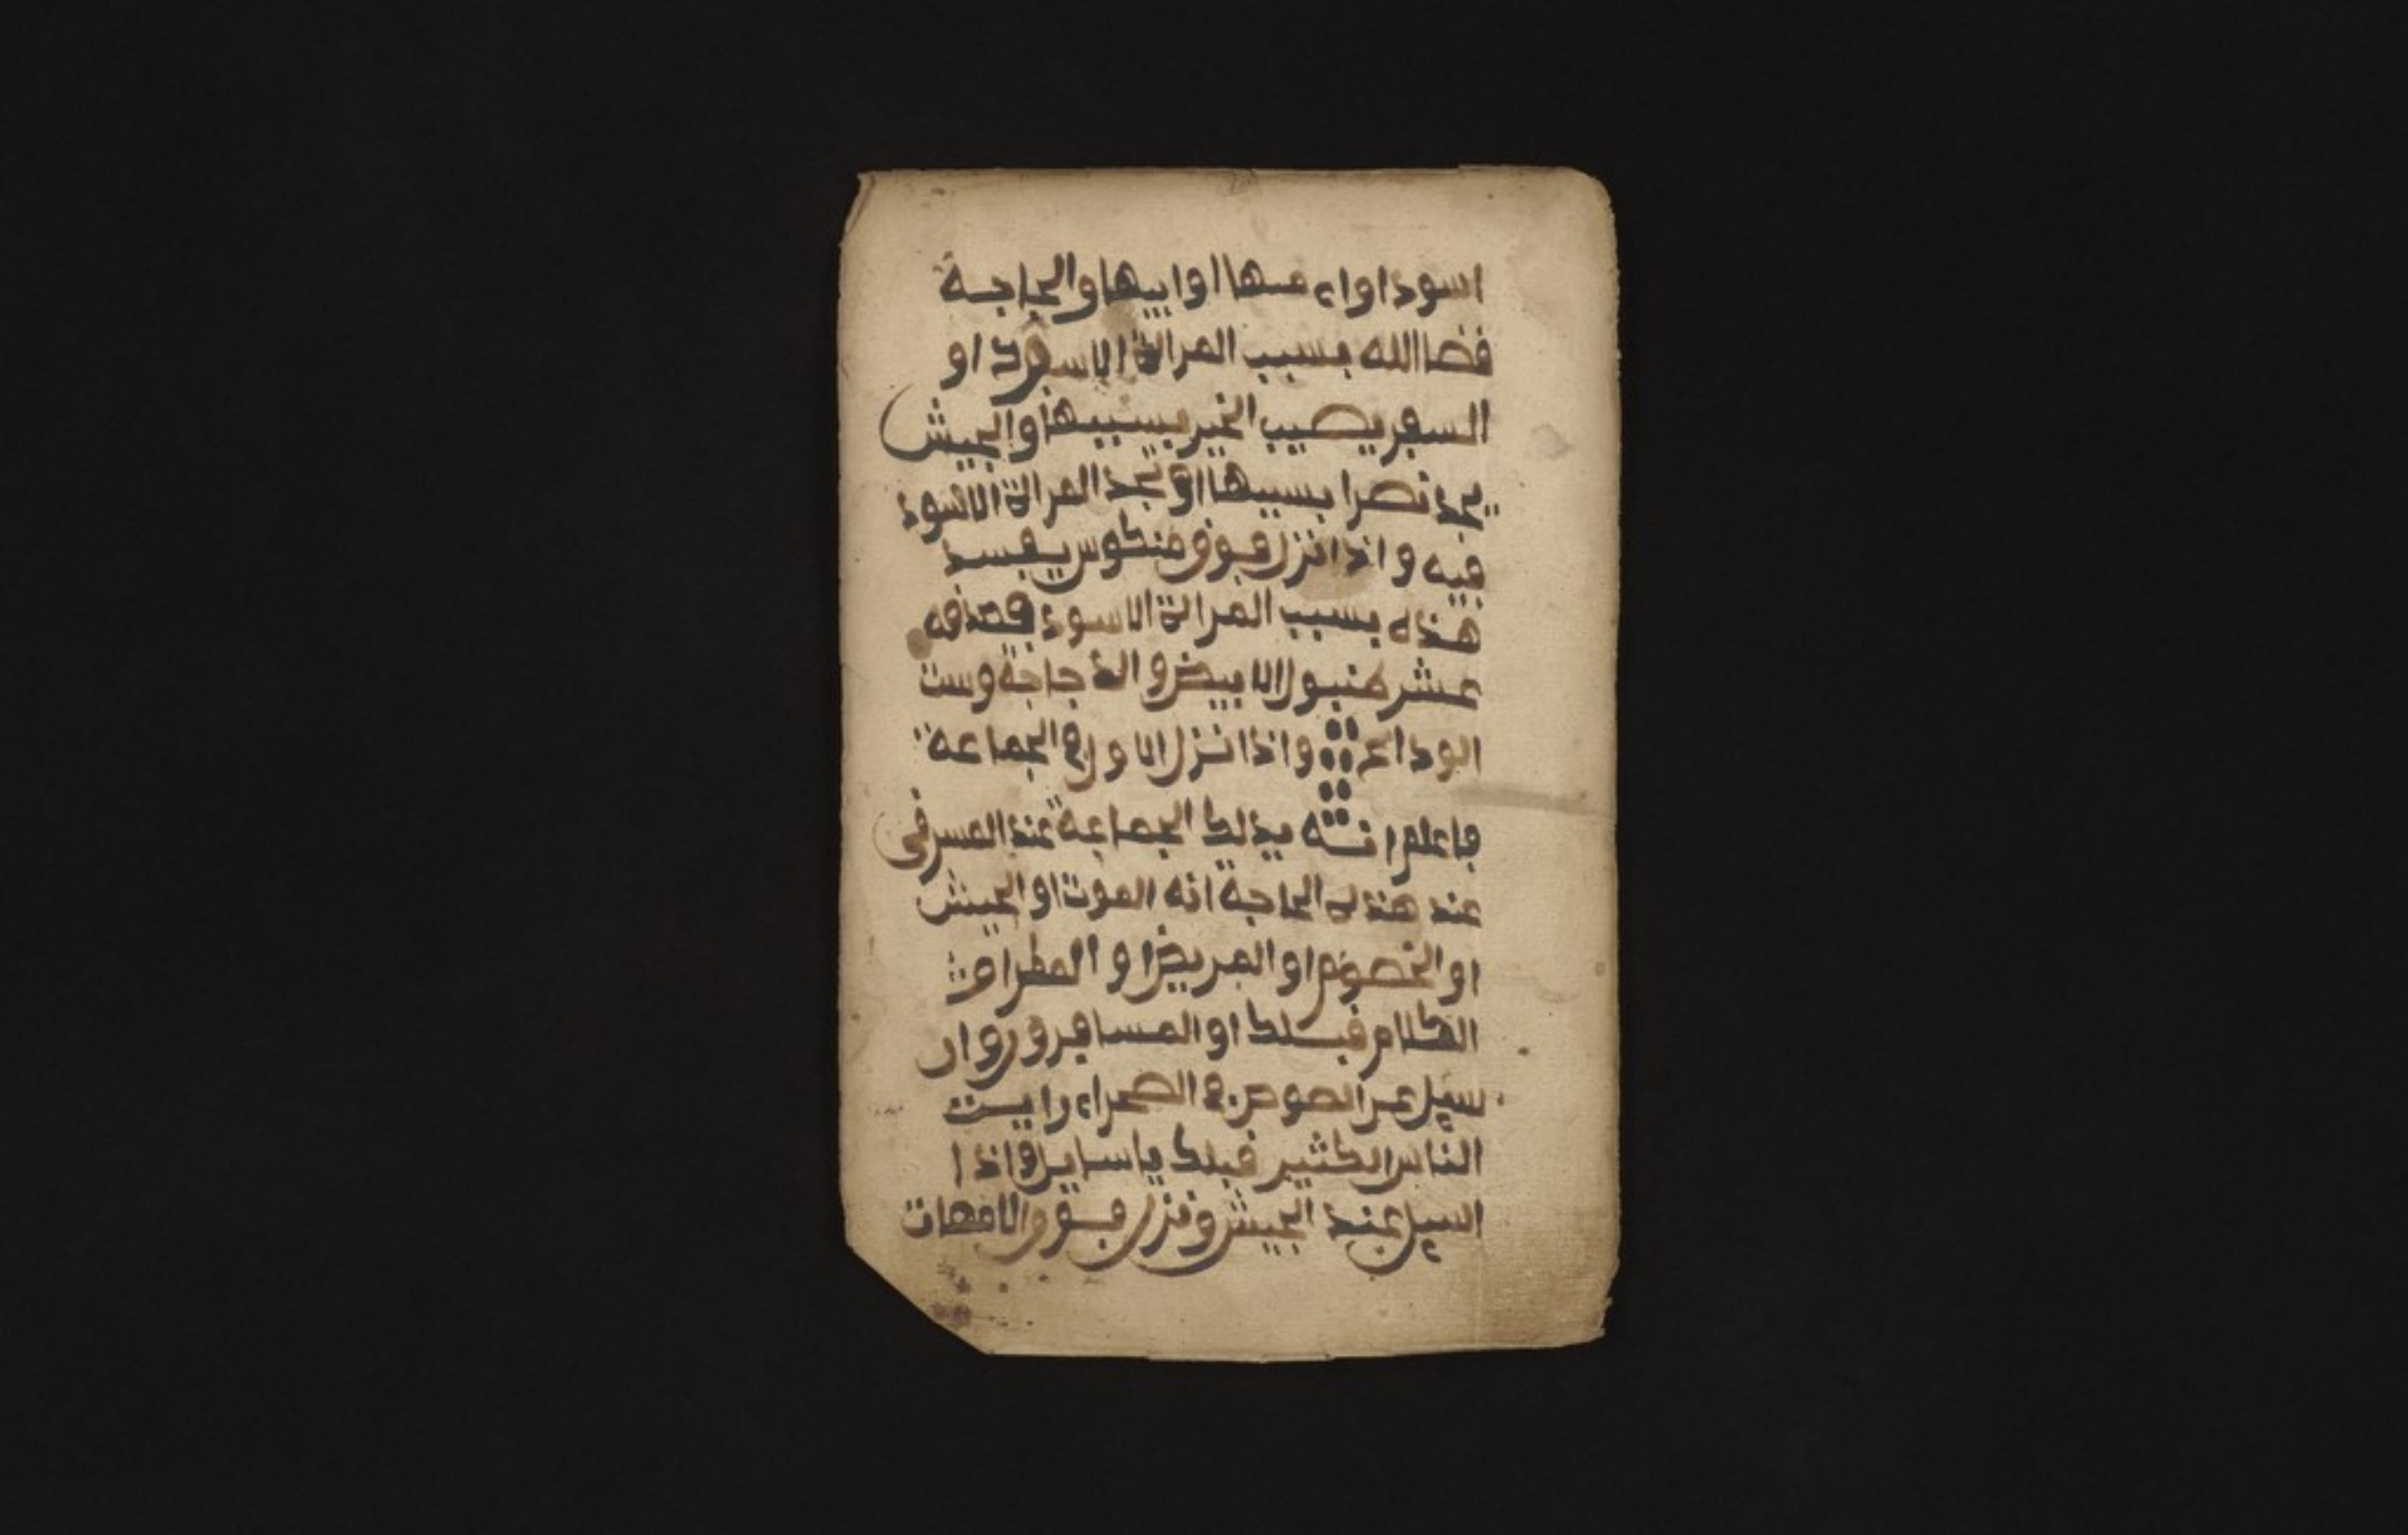 اسود او امها او ابيها والحاجة
قضا الله بسبب المراة الاسود او
السفر يصيب الخير بسببها والجيش
يجد نصرا بسببها او يجد المراة الاسود
فيه واذا نزل فوق منكوس يفسد
هذه بسبب المراة الاسود فصدقه
عشر فول الابيض والدجاجة وست
الودائع واذا نزل الاول في الجماعة
فاعلم انه يذلك الجماعة عند المسرفى
عند هذه الحاجة انه الموت او الجيش
او الخصوم او المريض او المطر او
الكلام قبلك او المسافرو وان
سيل عن الصوص في الصحراء رايت
الناس الكثير قبلك ياسايل واذا
السيل عند الجيش ونزل فوق الامهات